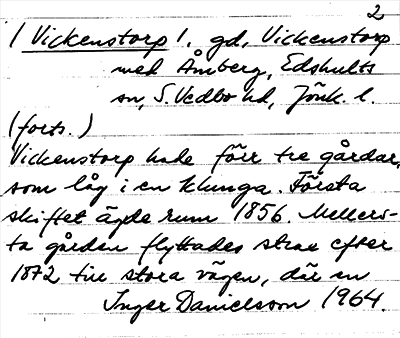 2
( Vickenstorp ), gd, Vickenstorp
med Åmberg, Edshults
sn, S. Vedbo hd, Jönk. l.
(forts.)
Vickenstorp hade förr tre gårdar,
som låg i en klunga. Första
skiftet ägde rum 1856. Mellers-
ta gården flyttades strax efter
1872 till stora vägen, där en
Inger Danielsson 1964.